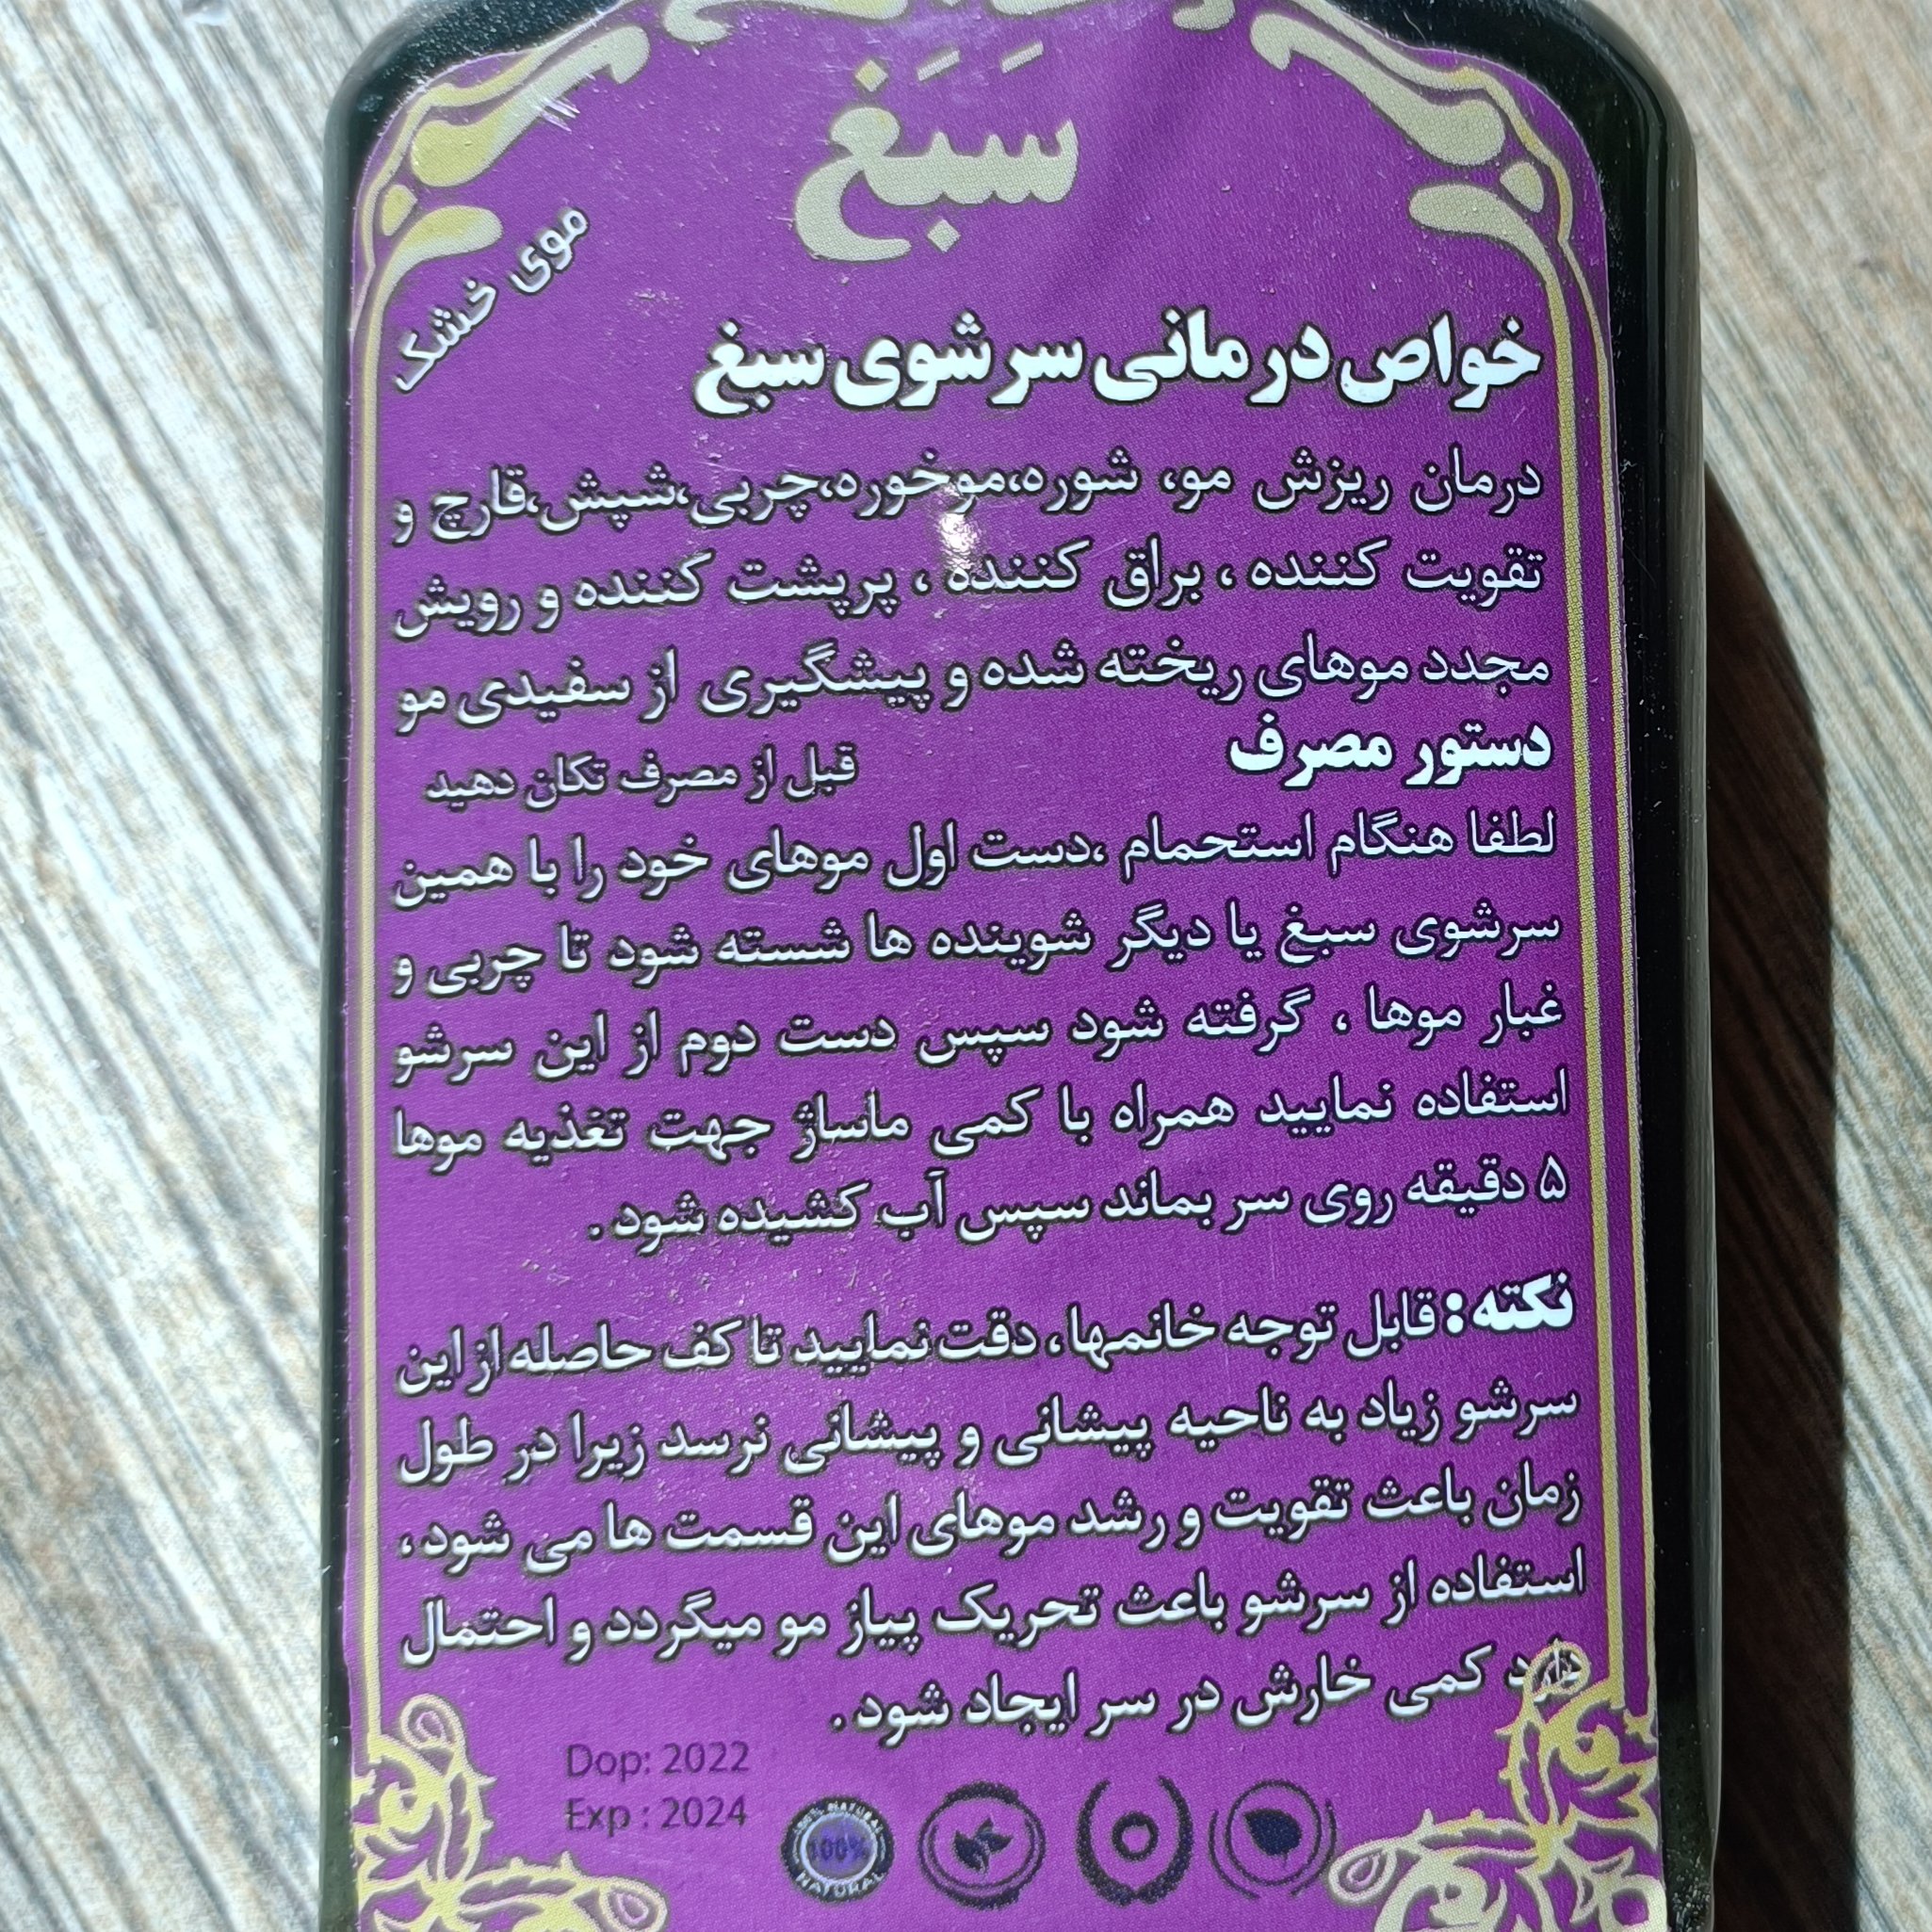 سَبَغ
موی خشک
خواص درمانی سرشوی سبغ
درمان ریزش مو، شوره،موخوره،چربی،شپش،قارچ و
تقویت کننده ، براق کننده ، پرپشت کننده و رویش
مجدد موهای ریخته شده و پیشگیری از سفیدی مو
دستور مصرف
قبل از مصرف تکان دهید
لطفا هنگام استحمام ،دست اول موهای خود را با همین
سرشوی سبغ یا دیگر شوینده ها شسته شود تا چربی و
غبار موها ، گرفته شود سپس دست دوم از این سرشو
استفاده نمایید همراه با کمی ماساژ جهت تغذیه موها
۵ دقیقه روی سر بماند سپس آب کشیده شود .
نکته : قابل توجه خانمها ، دقت نمایید تا کف حاصله از این
سرشو زیاد به ناحیه پیشانی و پیشانی نرسد زیرا در طول
زمان باعث تقویت و رشد موهای این قسمت ها می شود ،
استفاده از سرشو باعث تحریک پیاز مو میگردد و احتمال
دارد کمی خارش در سر ایجاد شود .
Dop: 2022
Exp : 2024
100% NATURAL
100%
NATURAL